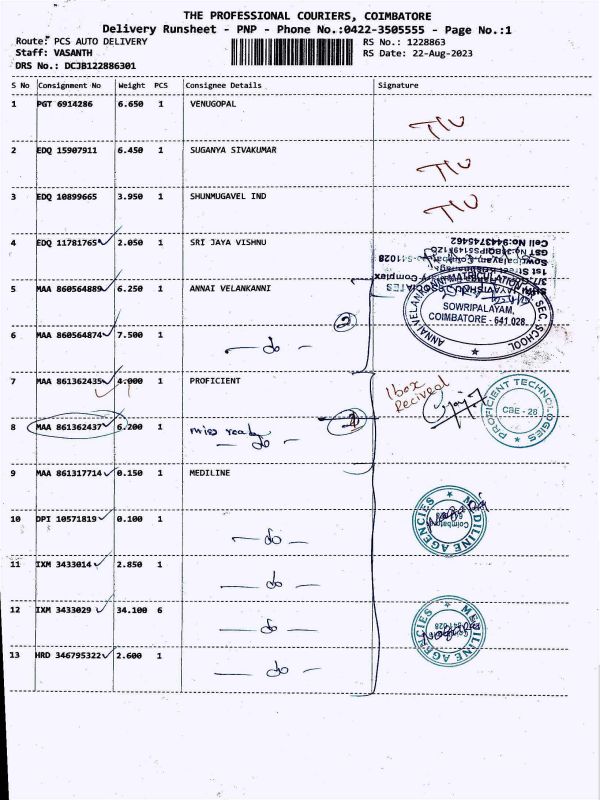 THE PROFESSIONAL COURIERS, COIMBATORE
Delivery Runsheet - PNP - Phone No.:0422-3505555 - Page No.:1
Route: PCS AUTO DELIVERY RS No.: 1228863
Staff: VASANTH RS Date: 22-Aug-2023
DRS No.: DCJB122886301
S No Consignment No Weight PCS Consignee Details Signature
1 PGT 6914286 6.650 1 VENUGOPAL
2 EDQ 15907911 6.450 1 SUGANYA SIVAKUMAR
3 EDQ 10899665 3.950 1 SHUNMUGAVEL IND
4 EDQ 11781765 2.050 1 SRI JAYA VISHNU
Cell No:9443745462
5 MAA 860564889 6.250 1 ANNAI VELANKANNI
ANNAI VELANKANNI MATRICULATION HR. SEC. SCHOOL
SOWRIPALAYAM,
COIMBATORE - 641 028
2
6 MAA 860564874 7.500 1 — do —
7 MAA 861362435 4.000 1 PROFICIENT
1 box
Recived
PROFICIENT TECHNOLOGIES
CBE - 28
8 MAA 861362437 6.200 1 — do —
9 MAA 861317714 0.150 1 MEDILINE
MEDILINE AGENCIES
10 DPI 10571819 0.100 1 — do —
11 IXM 3433014 2.850 1 — do —
12 IXM 3433029 34.100 6 — do —
MEDILINE AGENCIES
13 HRD 346795322 2.600 1 — do —